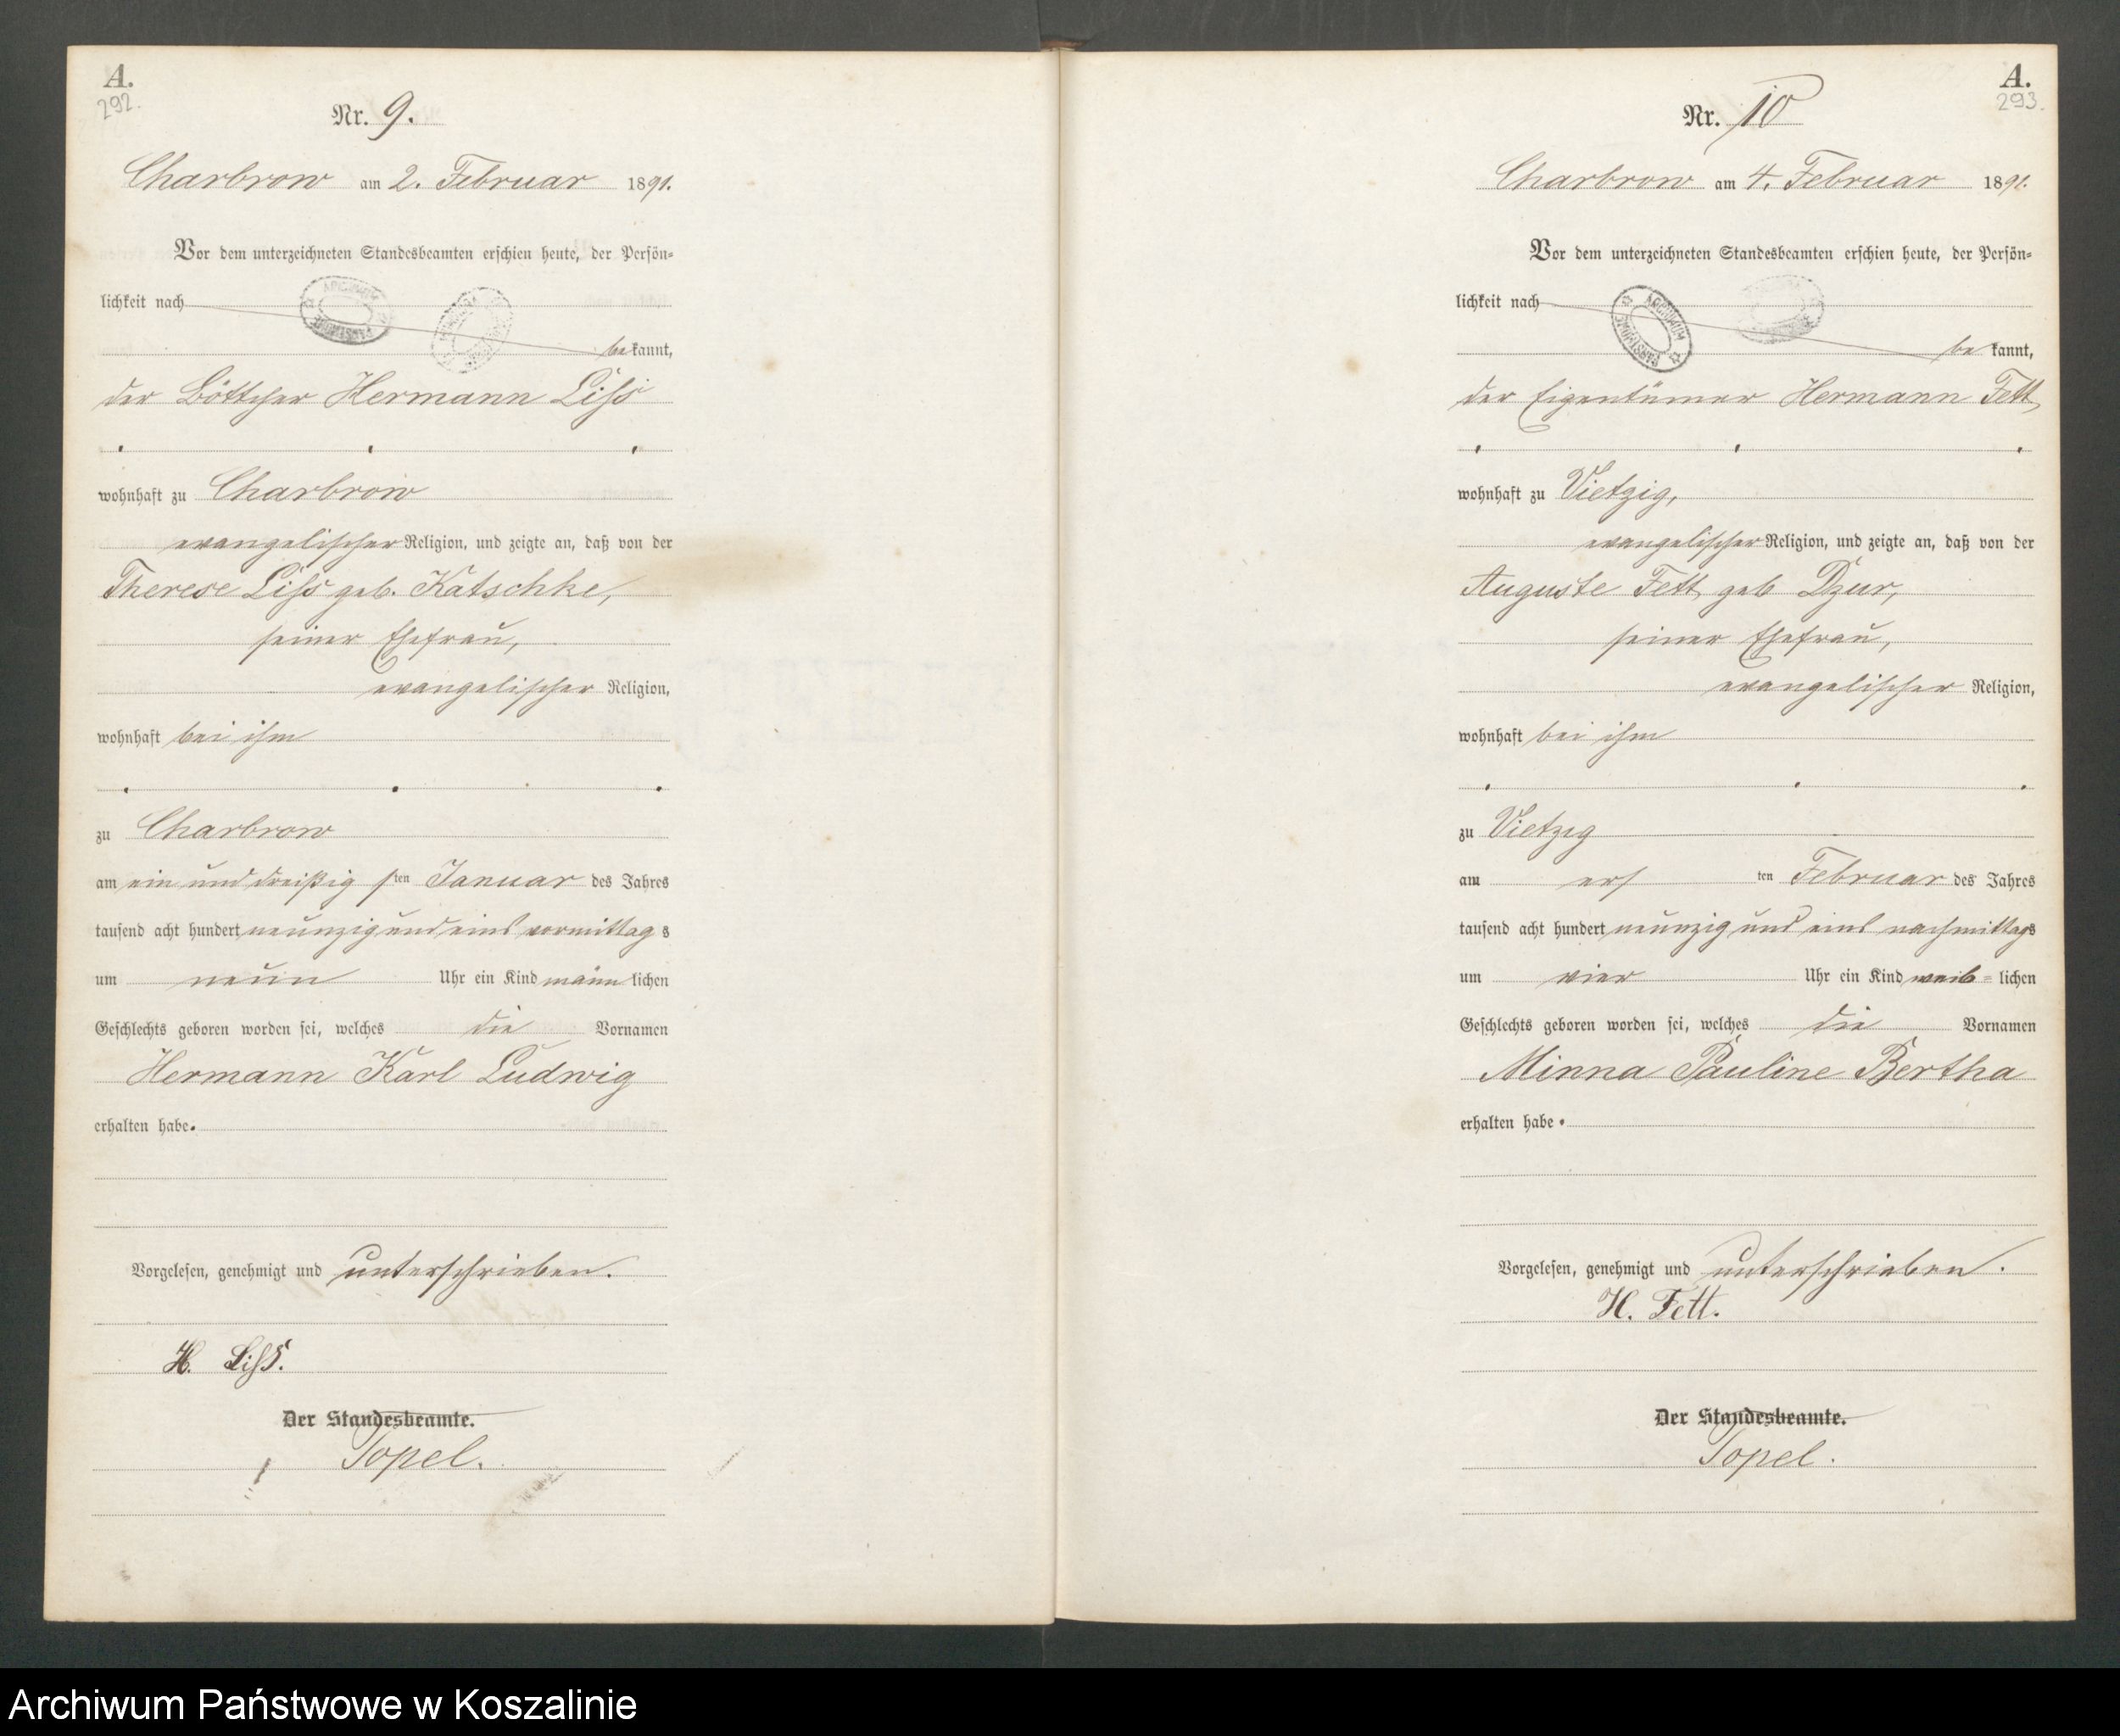 A.
292.
Nr. 9.
Charbrow am 2. Februar 1891.
Vor dem unterzeichneten Standesbeamten erschien heute, der Persön-
lichkeit nach
bekannt,
der Böttcher Hermann Liss
wohnhaft zu Charbrow
evangelischer Religion, und zeigte an, daß von der
Therese Liss geb. Katschke,
seiner Ehefrau,
evangelischer Religion,
wohnhaft bei ihm
zu Charbrow
am ein und dreißigsten Januar des Jahres
tausend acht hundert neunzig und eins vormittags
um neun Uhr ein Kind männlichen
Geschlechts geboren worden sei, welches die Vornamen
Hermann Karl Ludwig
erhalten habe.
Vorgelesen, genehmigt und unterschrieben.
H. Liss.
Der Standesbeamte.
Topel.
A.
293.
Nr. 10
Charbrow am 4. Februar 1891.
Vor dem unterzeichneten Standesbeamten erschien heute, der Persön-
lichkeit nach
ARCHIWUM PAŃSTWOWE
be kannt,
der Eigentümer Hermann Fett
wohnhaft zu Vietzig,
evangelischer Religion, und zeigte an, daß von der
Auguste Fett geb Dzur,
seiner Ehefrau,
evangelischer Religion,
wohnhaft bei ihm
zu Vietzig
am ersten Februar des Jahres
tausend acht hundert neunzig und eins nachmittags
um vier Uhr ein Kind weib-lichen
Geschlechts geboren worden sei, welches die Vornamen
Minna Pauline Bertha
erhalten habe.
Vorgelesen, genehmigt und unterschrieben.
H. Fett.
Der Standesbeamte.
Topel.
Archiwum Państwowe w Koszalinie